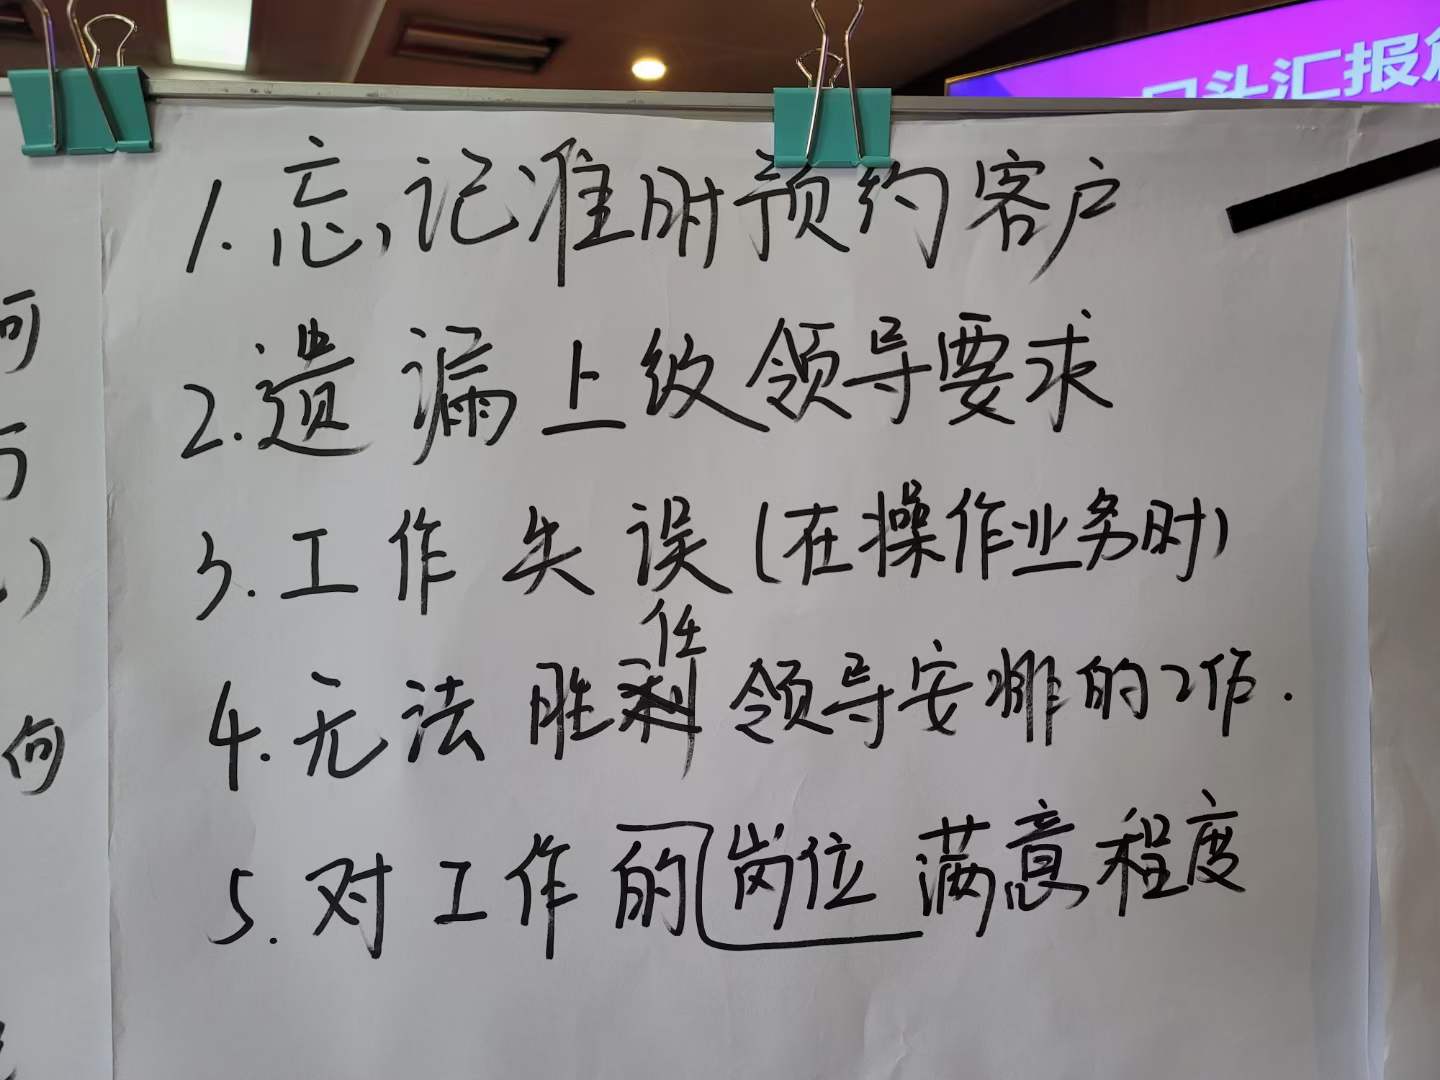 口头汇报
1.忘记准时预约客户
2.遗漏上级领导要求
3.工作失误(在操作业务时)
4.无法胜任领导安排的工作.
5.对工作的岗位满意程度
何